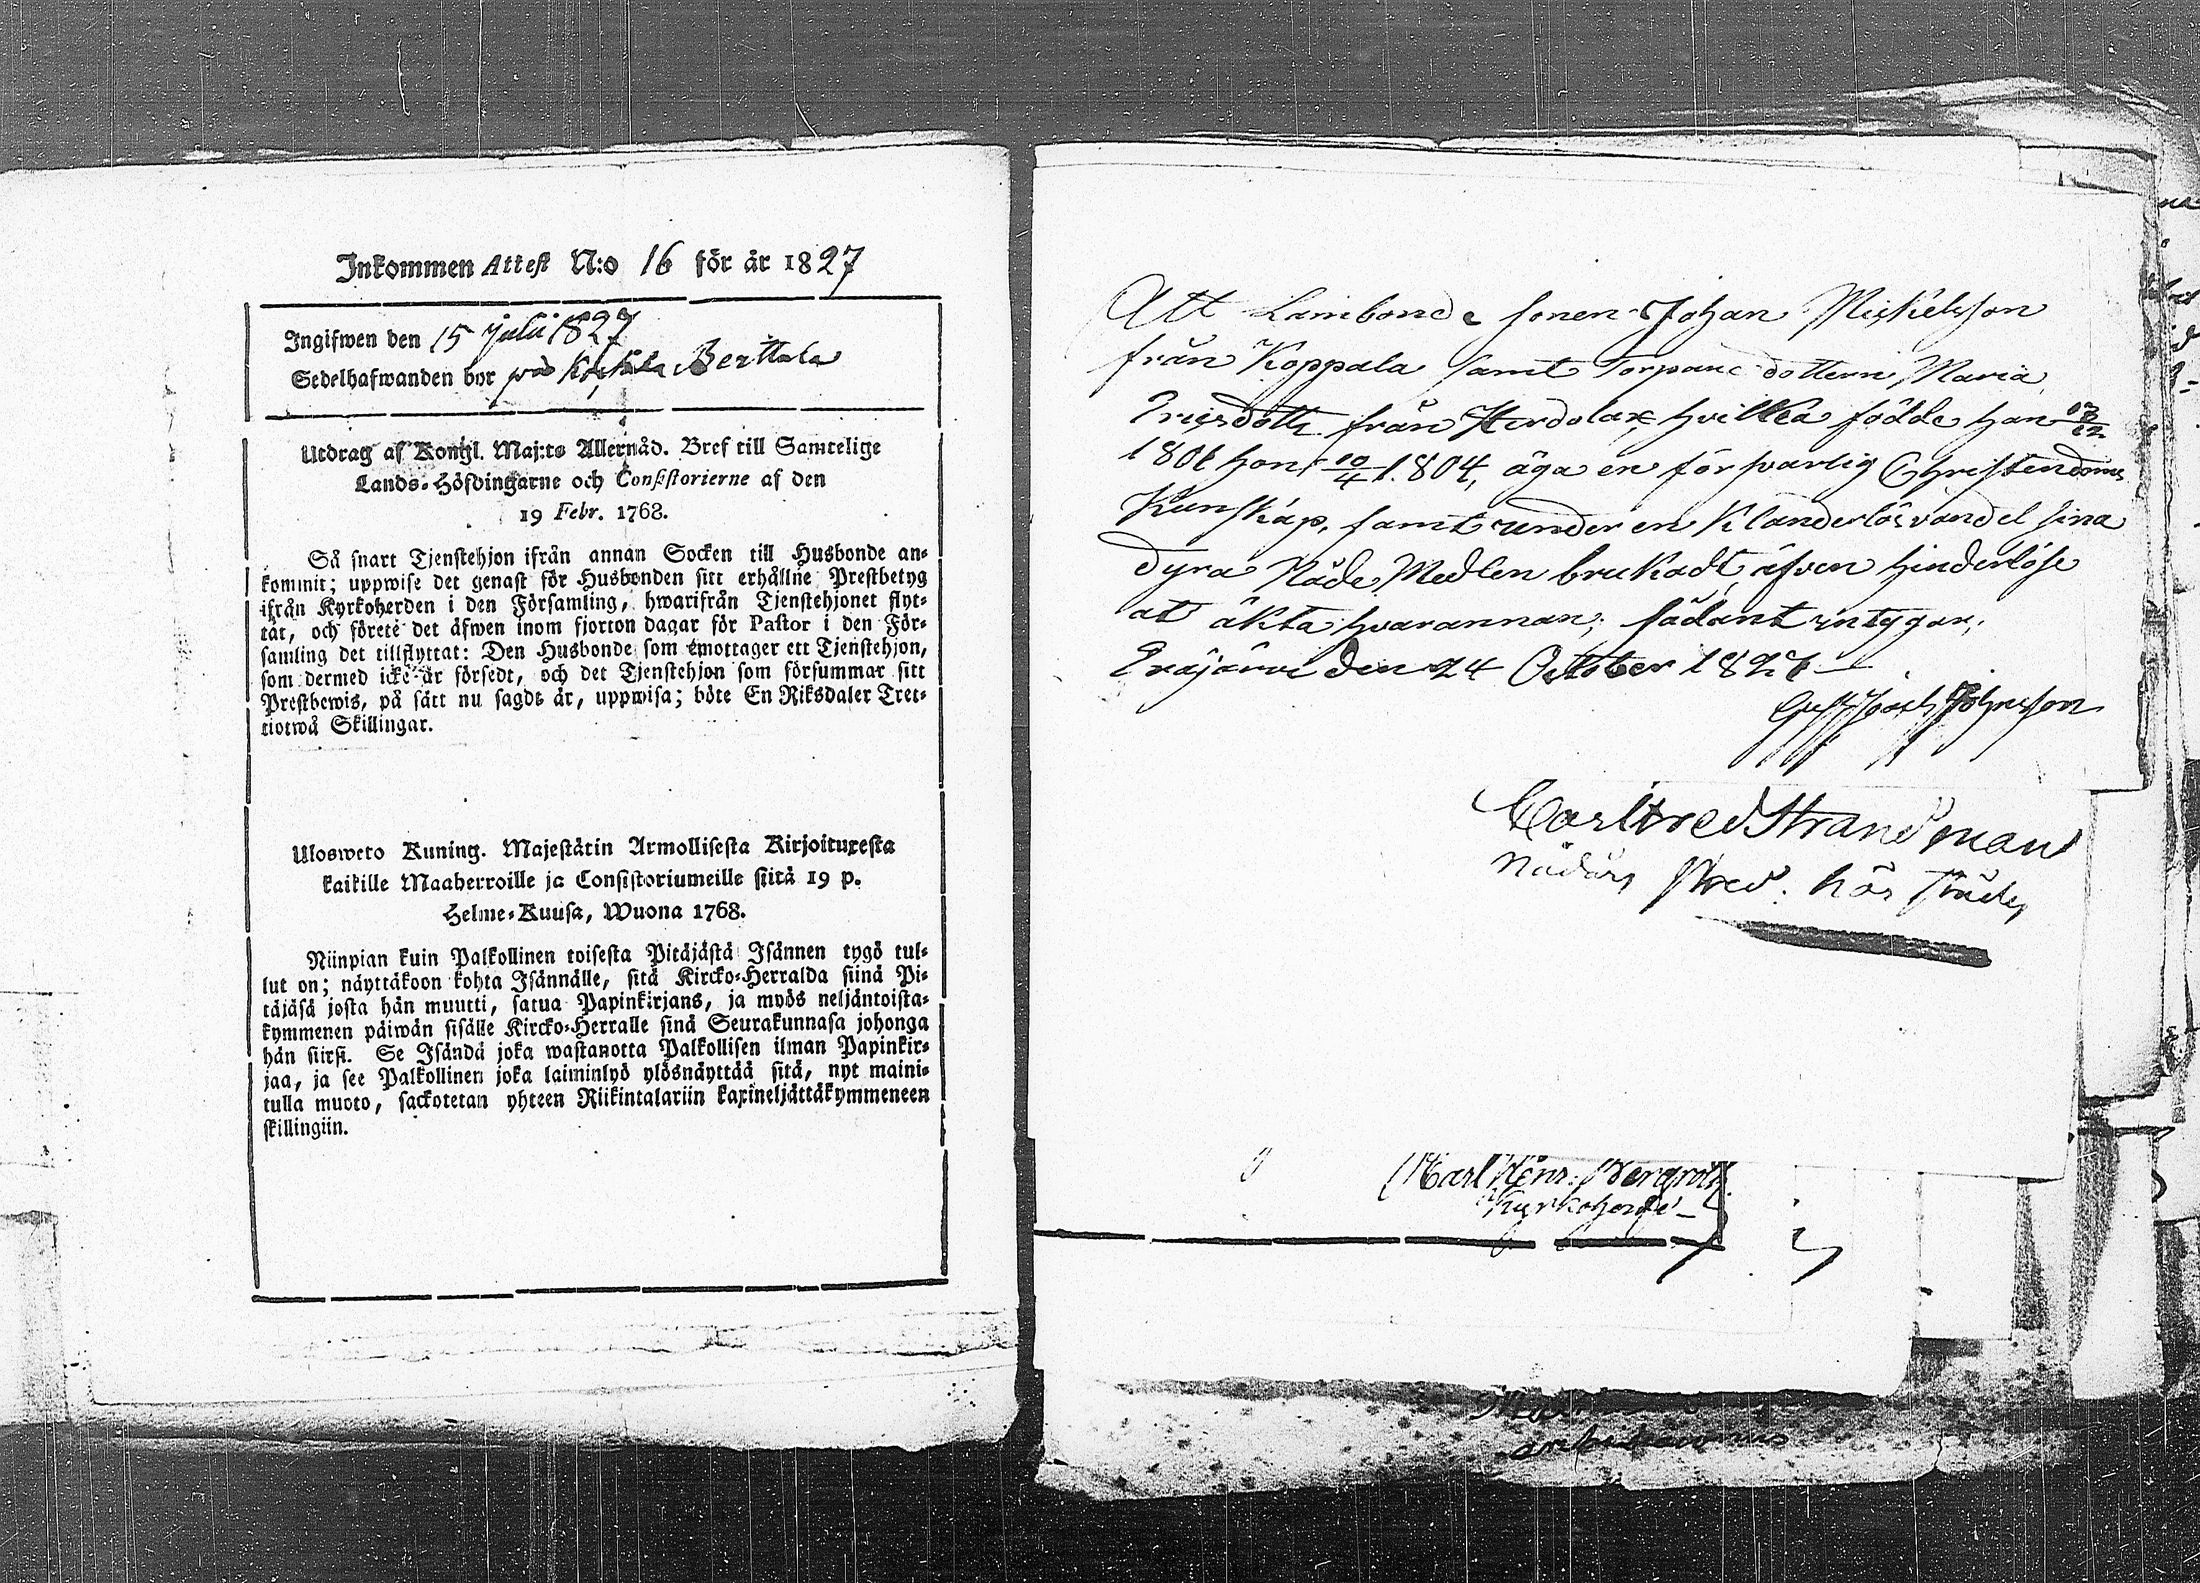 Inkommen Attest N:o 16 för år 1827
Ingifwen den 15 Julii 1827
Sedelhafwanden bor på Berttala
Utdrag af Kongl. Maj:ts Allernåd. Bref till Samtelige
Lands-Höfdingarne och Consistorierne af den
19 Febr. 1768.
Så snart Tjenstehjon ifrån annan Socken till Husbonde an-
kommit; uppwise det genast för Husbonden sitt erhållne Prestbetyg
ifrån Kyrkoherden i den Församling, hwarifrån Tjenstehjonet flyt-
tat, och förete det äfwen inom fjorton dagar för Pastor i den För-
samling det tillflyttat: Den Husbonde som emottager ett Tjenstehjon,
som dermed icke är försedt, och det Tjenstehjon som försummar sitt
Prestbewis, på sätt nu sagdt är, uppwisa; böte En Riksdaler Tret-
tiotwå Skillingar.
Ulosweto Kuning. Majestätin Armollisesta Kirjoituxesta
kaikille Maaherroille ja Consistoriumeille siitä 19 p.
Helme-Kuusa, Wuona 1768.
Niinpian kuin Palkollinen toisesta Pitäjästä Isännen tygö tul-
lut on; näyttäkoon kohta Isännälle, sitä Kircko-Herralda siinä Pi-
täjäsä josta hän muutti, satua Papinkirjans, ja myös neljäntoista-
kymmenen päiwän sisälle Kircko-Herralle sinä Seurakunnasa johonga
hän siirsi. Se Isändä joka wastanotta Palkollisen ilman Papinkir-
jaa, ja see Palkollinen joka laiminlyö ylösnäyttää sitä, nyt maini-
tulla muoto, sackotetan yhteen Riikintalariin kaxineljättäkymmeneen
skillingiin.
Att Lambonde sonen Johan Mickelsson
från Koppala samt Torpare dottern Maria
Ericsdotter från Herdolax, hvilka födde han
hon 10/4 1804, äga en försvarlig Christendoms
Kunskap, samt under en Klanderlös vandel sina
dyra Nåde Medlen brukadt, äfven hinderlöse
at äkta hvarannan; sådant intygar,
Eräjärvi den 24 October 1827
Gust. Joach. Johnsson
Carl Fred Strandman
Carl Henr: Bergroth
Kyrkoherde